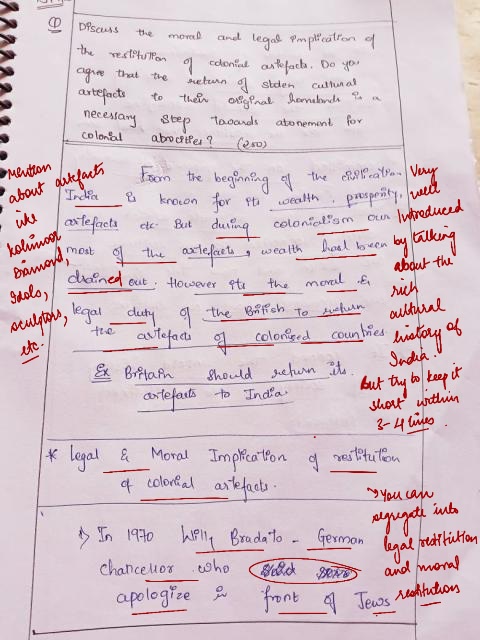 ① Discuss the moral and legal implication of
the restitution of colonial artefacts. Do you
agree that the return of stolen cultural
artefacts to their original homelands is a
necessary step towards atonement for
colonial atrocities? (250)
Mention
about artefacts
like
Kohinoor
Diamond,
Idols,
sculptors,
etc.
From the beginning of the civilication
India is known for its wealth, prosperity,
artefacts etc. But during colonialism our
most of the artefacts, wealth had been
drained out. However its the moral &
legal duty of the British to return
the artefacts of colonised countries
Ex Britain should return its
artefacts to India.
Very
well
Introduced
by talking
about the
rich
cultural
history of
India.
But try to keep it
short within
3-4 lines.
* Legal & Moral Implication of restitution
of colonial artefacts.
→ You can
segregate into
legal restitution
and moral
restitution
1) In 1970 Willy Bradato - German
Chancellor who
apologize in front of Jews